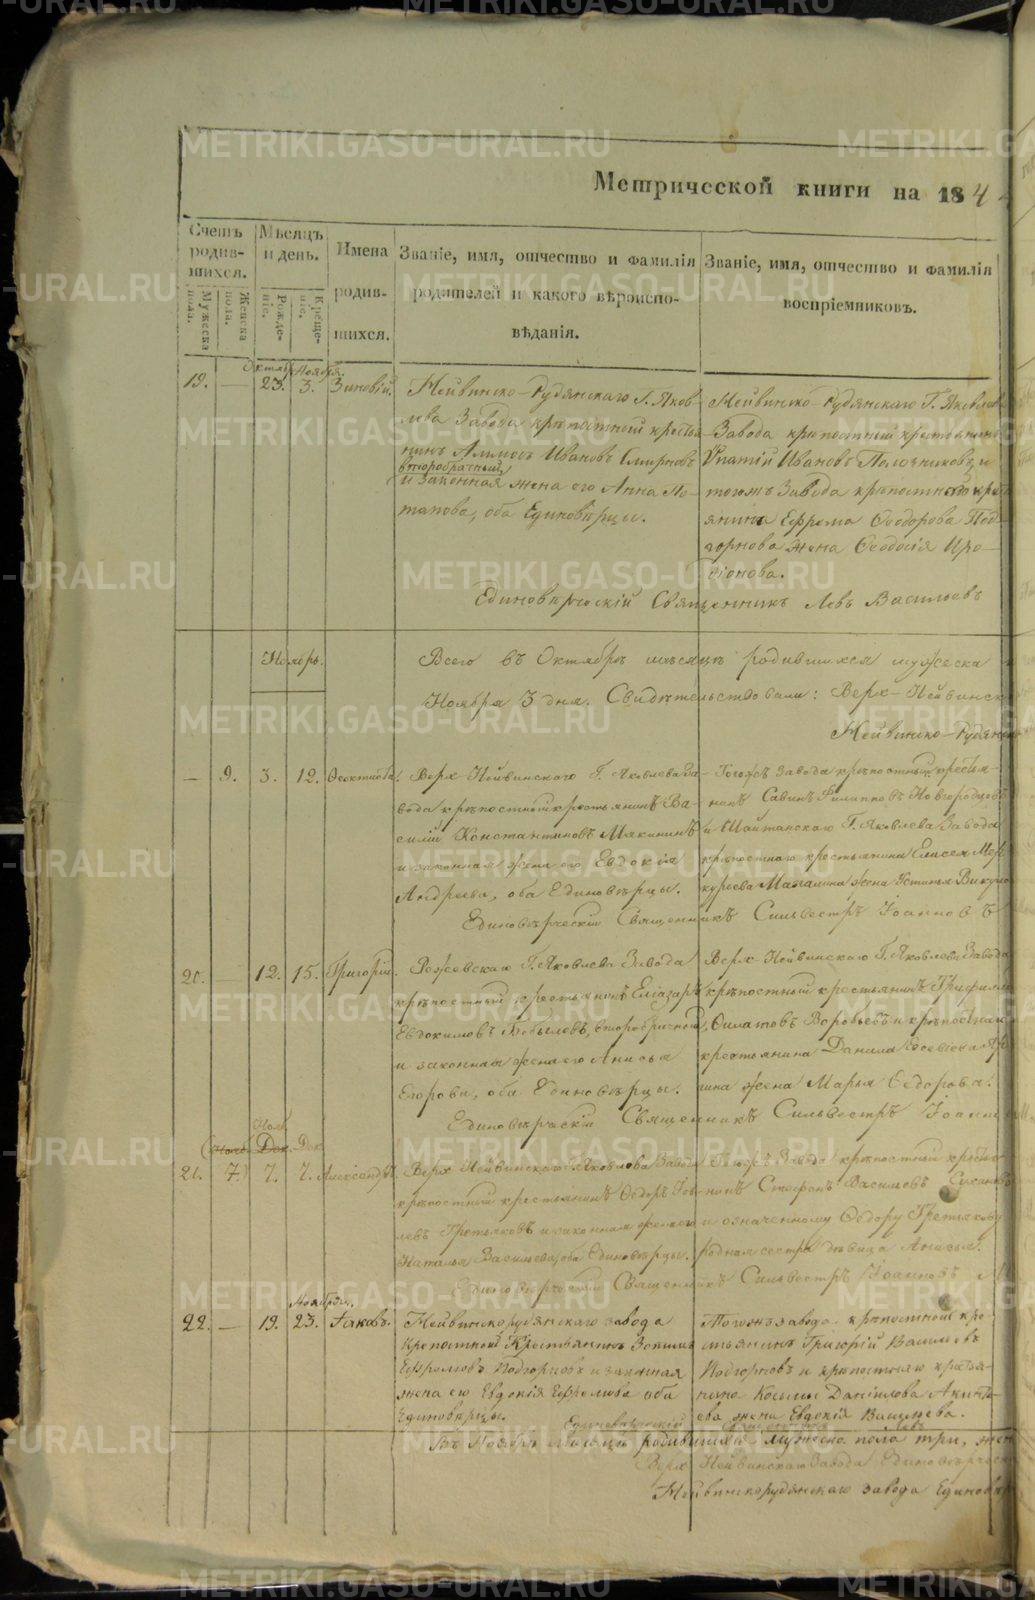 Метрической книги на 184
Счетъ родившихся.
Мужеска пола.
Женска пола.
Мѣсяцъ и день.
Рожденіе.
Крещеніе.
Имена родившихся.
Званіе, имя, отчество и фамилія
родителей и какого вѣроиспо-
вѣданія.
Званіе, имя, отчество и фамилія
воспріемниковъ.
Октяб. Ноября.
19. — 23. 3. Зиновій.
Нейвинско-Рудянскаго Г. Яков-
лева Завода крѣпостный крестья
нинъ Ивановъ Смирновъ
второбрачный
и законная жена его Анна По-
тапова, оба Единовѣрцы.
Нейвинско-Рудянскаго Г. Яковлева
Завода крѣпостный крестьянинъ
Ипатій Ивановъ и
тогожъ Завода крѣпостнаго крест
янина Ефрема Ѳеодорова Под-
горнова жена Ѳеодосія Иро-
діонова.
Единовѣрческій Священникъ Левъ Васильевъ
Ноябрь.
Всего въ Октябрѣ мѣсяцѣ родившихся мужеска
Ноября 3 дня. Свидѣтельствовали: Верх-Нейвинск
Нейвинско-Рудянск
— 9. 3. 12. Ѳеоктиста.
Верх Нейвинскаго Г. Яковлева За-
вода крѣпостный крестьянинъ Ва-
силій Константиновъ Мякининъ
и законная жена его Евдокія
Андреева, оба Единовѣрцы.
Тогожъ завода крѣпостный крестья-
нинъ Савинъ Филипповъ Новгородцовъ
и Шайтанскаго Г. Яковлева Завода
крѣпостнаго крестьянина Елисея Мер
курьева жена Устинья Викуло
Единовѣрческій Священникъ Сильвестръ Іоанновъ
20. — 12. 15. Григорій.
Г. Яковлева Завода
крѣпостный крестьянинъ Еліазаръ
Евдокимовъ второбрачной,
и законная жена его Анисья
Егорова, оба Единовѣрцы.
Верх-Нейвинскаго Г. Яковлева Завода
крѣпостный крестьянинъ
Филатовъ Воробьевъ и крѣпостнаго
крестьянина Данила
жена Марья Ѳедорова.
Единовѣрческій Священникъ Сильвестръ Іоанн
Нояб.
Дек. Дек
21. 7. 7. 7. Александръ.
Верх Нейвинскаго Г. Яковлева Завода
крѣпостный крестьянинъ Ѳедоръ
Третьяковъ и законная жена его
Наталья Васильева, оба Единовѣрцы.
Тогожъ Завода крѣпостный крестья
нинъ Стефанъ Васильевъ
и означенному Ѳедору Третьякову
родная сестра дѣвица Анисья.
Единовѣрческій Священникъ Сильвестръ Іоанновъ
Ноября.
22. — 19. 23. Іаковъ.
Нейвинскорудянскаго завода
Крепостной Крестьянинъ
Ефремовъ Подгорновъ и законная
жена его Евдокія Ефремова оба
Единовѣрцы.
Тогожъ завода крѣпостной кре-
стьянинъ Григорій Васильевъ
Подгорновъ и крѣпостнаго крестья-
нина Косьмы Данілова Акинтье-
ева жена Евдокія Васильева.
Единовѣрческій Священникъ Левъ
Въ Ноябрѣ мѣсяцѣ родившихся мужеска пола три, жен
Верх Нейвинскаго Завода Единовѣрческ
Нейвинскорудянскаго завода Единовѣр
METRIKI.GASO-URAL.RU